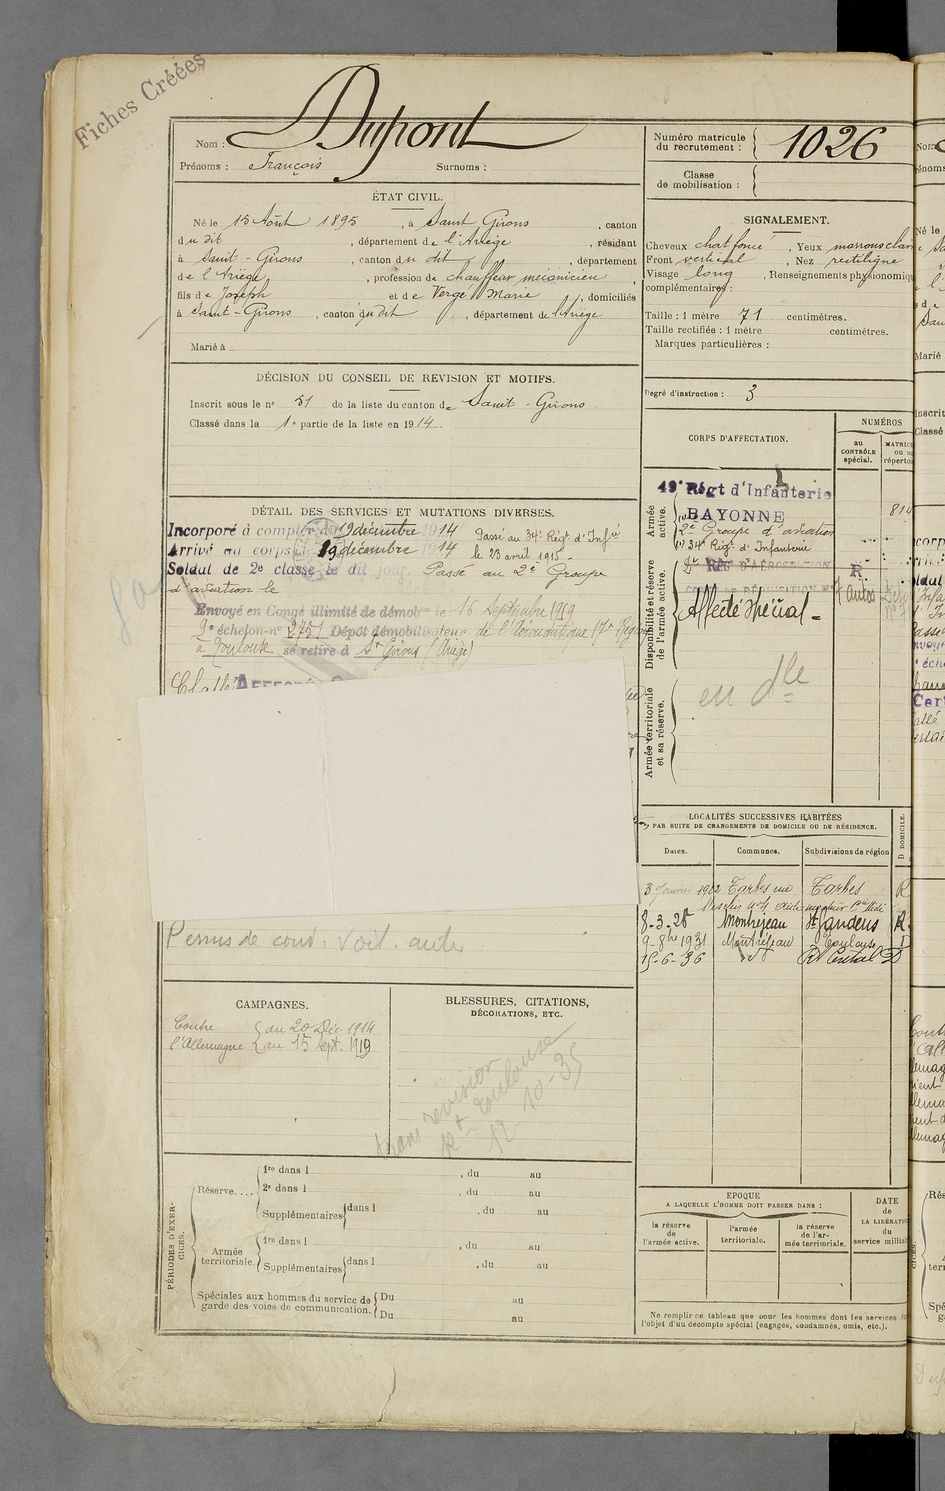 Fiches Créées
Nom : Dupont
Prénoms : François Surnoms :
Numéro matricule du recrutement : 1026
Classe de mobilisation :
ÉTAT CIVIL.
Né le 15 Août 1895, à Saint Girons, canton
du dit, département de l'Ariège, résidant
à Saint-Girons, canton du dit, département
de l'Ariège, profession de chauffeur mécanicien
fils de Joseph et de Vergé Marie, domiciliés
à Saint-Girons, canton du dit, département de l'Ariège
Marié à
SIGNALEMENT.
Cheveux chat foncé, Yeux marrons clair
Front vertical, Nez rectiligne
Visage long, Renseignements physionomiq
complémentaires :
Taille : 1 mètre 71 centimètres.
Taille rectifiée : 1 mètre centimètres.
Marques particulières :
Degré d'instruction : 3
DÉCISION DU CONSEIL DE REVISION ET MOTIFS.
Inscrit sous le nº 51 de la liste du canton de Saint-Girons
Classé dans la 1e partie de la liste en 1914.
CORPS D'AFFECTATION.
NUMÉROS
au CONTRÔLE spécial.
49e Régt d'Infanterie
BAYONNE
2e Groupe d'aviation
34e Régt d'Infanterie
814
RÉGT D'AÉROSTATION
R
Affecté Spécial
en dle
Armée active.
Disponibilité et réserve de l'armée active.
Armée territoriale et sa réserve.
DÉTAIL DES SERVICES ET MUTATIONS DIVERSES.
Incorporé à compter du 19 décembre 1914
Arrivé au corps le 19 décembre 1914
Passé au 34e Régt d'Infie
le 23 avril 1915-
Soldat de 2e classe le dit jour. Passé au 2e Groupe
d'aviation le
Envoyé en Congé illimité de démobon le 16 Septembre 1919
9e échelon-nº 2751 Dépôt démobilisateur de l'Aéronautique
à Toulouse se retire à St Girons (Ariège)
Permis de cond. voit. auto
LOCALITÉS SUCCESSIVES HABITÉES
PAR SUITE DE CHANGEMENTS DE DOMICILE OU DE RÉSIDENCE.
Dates. Communes. Subdivisions de région D DOMICILE.
Tarbes rue Tarbes R
8-3-28 Montréjeau St Gaudens R
9-8bre 1931 Montréjeau Toulouse
15-6-36 D
CAMPAGNES.
Contre l'Allemagne
du 20 Déc. 1914
au 15 Sept. 1919
BLESSURES, CITATIONS,
DÉCORATIONS, ETC.
Toulouse
PÉRIODES D'EXERCICES.
Réserve....
1re dans l , du au
2e dans l , du au
Supplémentaires dans l , du au
Armée territoriale.
1re dans l , du au
Supplémentaires dans l , du au
Spéciales aux hommes du service de garde des voies de communication.
Du au
Du au
EPOQUE
A LAQUELLE L'HOMME DOIT PASSER DANS :
la réserve de l'armée active.
l'armée territoriale.
la réserve de l'armée territoriale.
DATE de LA LIBÉRATI du service militai
Ne remplir ce tableau que pour les hommes dont les services
l'objet d'un décompte spécial (engagés, condamnés, omis, etc.).